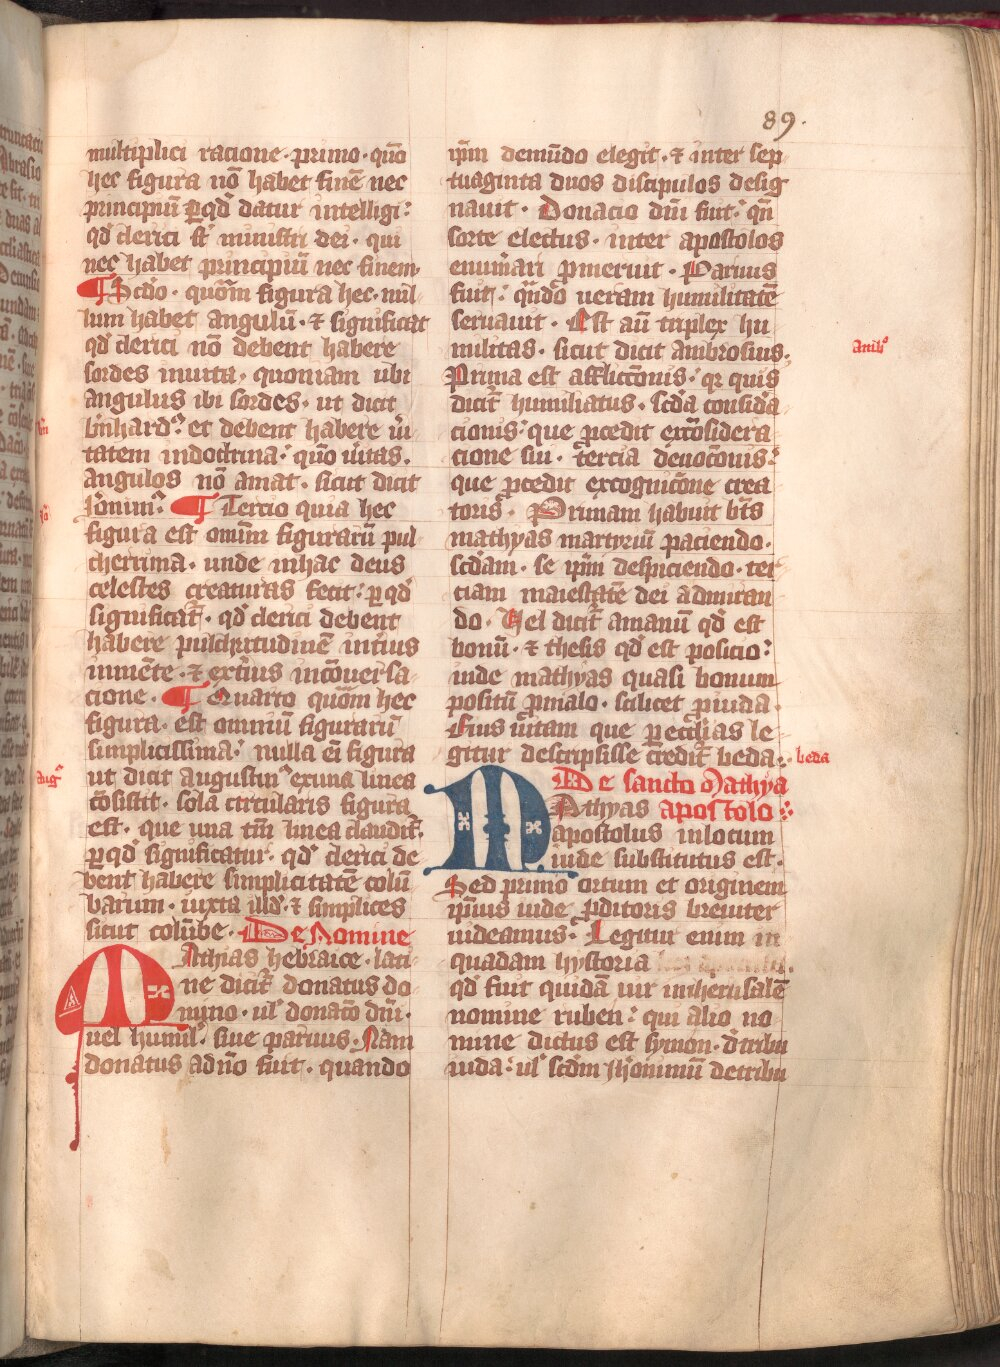 89.
multiplici racione · primo · qūo
hec figura nō habet finē nec
principiū ꝑqd̄ datur intelligi:
qd̄ clerici st̄ ministri dei · qui
nec habet principiū nec finem
¶ Scdo · quōm figura hec · nul-
lum habet angulū · ⁊ significat
qd̄ clerici nō debent habere
sordes in uita · quoniam ubi
angulus ibi sordes · ut dicit
b̄nhardꝰ et debent habere ūi
tatem in doctrina: quō ūitas.
angulos nō amat · sicut dicit
Jeronimꝰ ¶ Tercio quia hec
figura est omīm figurarū pul
cherrima · unde in hac deus
celestes creaturas fecit: ꝑqd̄
significat̄ · qd̄ clerici debent
habere pulchritudinē intius
in mēte · ⁊ extius in cōuersa-
cione · ¶ Quarto quōm hec
figura · est omniū figurarū
simplicissima: nulla em̄ figura
ut dicit Augustinꝰ ex una linea
cōsistit · sola circularis figura
est · que una tm̄ linea claudit̄.
ꝑqd̄ significatur · qd̄ clerici de
bent habere simplicitatē colū
barum · iuxta illd · ⁊ simplices
sicut colūbe · De Nomine
Mathias hebraice · lati-
ne dicit̄ donatus do-
mino · ul̄ donatō dn̄i ·
uel humil̄ · siue paruus · Nam
donatus a dn̄o fuit · quando
ip̄m de mūdo elegit · ⁊ inter sep-
tuaginta duos discipulos desig
nauit · Donacio dn̄i fuit: qn̄
sorte electus · inter apostolos
enum̄ari ꝓmeruit · Paruus
fuit: qn̄do ueram humilitatē
seruauit · Est aūt triplex hu
militas · sicut dicit ambrosius ·
Prima est afflicc̄onis: qꝛ quis
dicit̄ humiliatus · scda consid̄a
cionis: que p̄cedit ex cōsidera
cione sui · tercia deuoc̄onis:
que p̄cedit ex cognic̄one crea
toris · Primam habuit bt̄s
mathyas martyriū paciendo ·
scdam · se ip̄m despiciendo · ter
ciam maiestatē dei admiran
do · Vel dicit̄ a manū qd̄ est
bonū · ⁊ thesis qd̄ est posicio:
inde mathyas quasi bonum
positū ꝓ malo · scilicet ꝓ iuda ·
Eius uitam que ꝑ eccl̄ias le
gitur descripsisse credit̄ beda ·
De sancto Mathya
Mathyas apostolo
apostolus in locum
iude substitutus est ·
Sed primo ortum et originem
ip̄ius iude ꝓditoris breuiter
uideamus: Legitur enim in
quadam hystoria
qd̄ fuit quidā uir in iherusalē
nomine ruben: qui alio no
mine dictus est symon · d̄ tribu
iuda: ul̄ scdm Jheronimū de tribu
Aug̃
beda